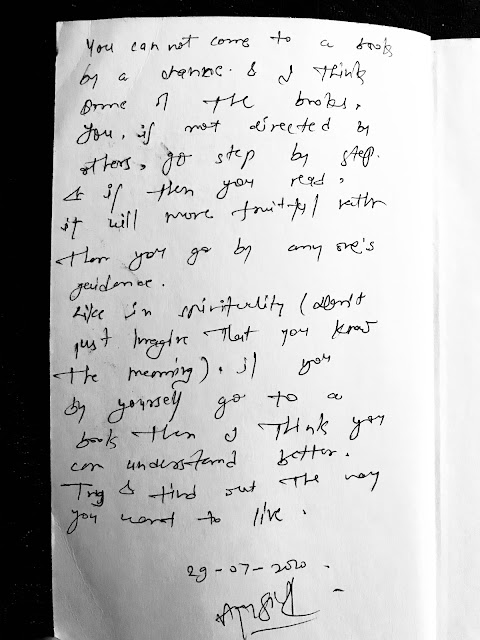 You can not come to a book
by a chance. & I think
some of the books,
you, if not directed by
others, go step by step.
& if then you read,
it will more fruitful rather
then you go by any one's
guidance.
Like in spiritulity (don't
just Imagine that you know
the meaning). if you
by yourself go to a
book then I think you
can understand better.
Try & find out the way
you want to live.
29-07-2020.